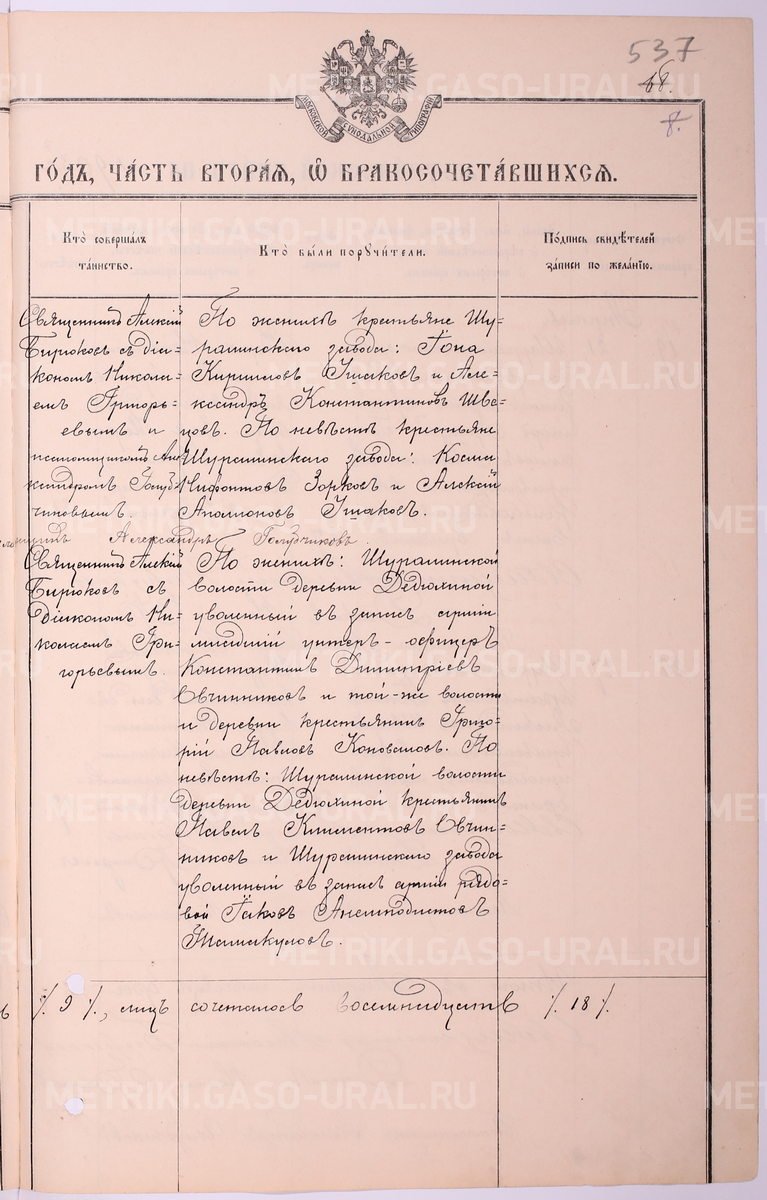 537
68.
8.
МОСКОВСКОЙ СѴНОДАЛЬНОЙ ТИПОГРАФІИ
ГО́ДЪ, ЧА́СТЬ ВТОРА́Я, Ѡ҆ БРАКОСОЧЕТА́ВШИХСЯ.
Кто̀ соверша́лъ
та́инство.
Кто̀ бы́ли поручи́тели.
По́дпись свидѣ́телей
за́писи по жела́нїю.
Священникъ Алексій
Бирюковъ съ діа-
кономъ Никола-
емъ Григорь-
евымъ и
псаломщикомъ Але
ксандромъ Голуб
чиковымъ.
По женихѣ крестьяне Шу-
ралинскаго завода: Іона
Кирилловъ Ушаковъ и Але-
ксандръ Константиновъ Шве-
цовъ. По невѣстѣ крестьяне
Шуралинскаго завода: Косма
Нифонтовъ Зорковъ и Алексій
Ушаковъ.
Александръ Голубчиковъ.
Священникъ Алексій
Бирюковъ съ
діакономъ Ни-
колаемъ Гри-
горьевымъ.
По женихѣ: Шуралинской
волости деревни Дедюхиной
уволенный въ запасъ арміи
младшій унтеръ-офицеръ
Константинъ Димитріевъ
Овчинниковъ и той-же волости
и деревни крестьянинъ Григо-
рій Павловъ Коноваловъ. По
невѣстѣ: Шуралинской волости
деревни Дедюхиной крестьянинъ
Павелъ Климентовъ Овчин-
никовъ и Шуралинскаго завода
уволенный въ запасъ арміи рядо-
вой Іаковъ Анемподистовъ
Ташкуловъ.
ъ /. 9 /., лицъ сочеталось восемнадцать /. 18 /.
METRIKI.GASO-URAL.RU